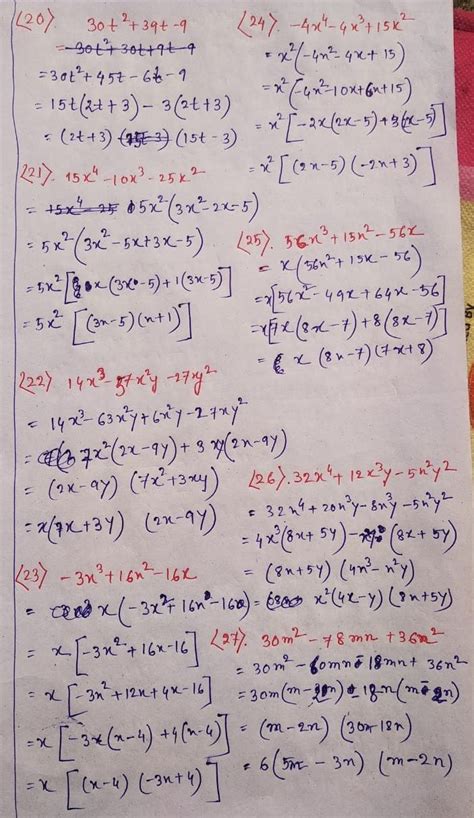 (20) 30t²+39t-9
= 30t²+30t+9t-9
= 30t²+45t-6t-9
= 15t(2t+3)-3(2t+3)
= (2t+3) (15t-3)
(21). 15x⁴-10x³-25x²
= 5x²(3x²-2x-5)
= 5x²(3x²-5x+3x-5)
= 5x²[x(3x-5)+1(3x-5)]
= 5x² [(3x-5)(x+1)]
(22) 14x³-57x²y-27xy²
= 14x³-63x²y+6x²y-27xy²
= 7x²(2x-9y)+3xy(2x-9y)
= (2x-9y) (7x²+3xy)
= x(7x+3y) (2x-9y)
(23) -3x³+16x²-16x
= x(-3x²+16x-16)
= x[-3x²+16x-16]
= x[-3x²+12x+4x-16]
= x[-3x(x-4)+4(x-4)]
= x[(x-4)(-3x+4)]
(24). -4x⁴-4x³+15x²
= x²(-4x²-4x+15)
= x²(-4x²-10x+6x+15)
= x²[-2x(2x-5)+3(x-5)]
= x²[(2x-5)(-2x+3)]
(25). 56x³+15x²-56x
= x(56x²+15x-56)
= x[56x²-49x+64x-56]
= x[7x(8x-7)+8(8x-7)]
= x(8x-7)(7x+8)
(26). 32x⁴+12x³y-5x²y²
= 32x⁴+20x³y-8x³y-5x²y²
= 4x³(8x+5y)-x²y(8x+5y)
= (8x+5y) (4x³-x²y)
= x²(4x-y)(8x+5y)
(27). 30m²-78mn+36n²
= 30m²-60mn-18mn+36n²
= 30m(m-2n)-18n(m-2n)
= (m-2n) (30-18n)
= 6(5m-3n) (m-2n)